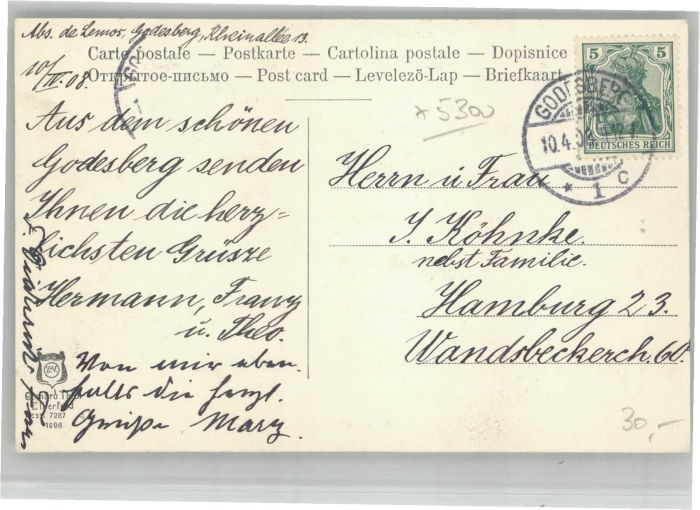 Abs. de Lemos, Godesberg, Rheinallee 13.
Carte postale — Postkarte — Cartolina postale — Dopisnice
Открытое-письмо — Post card — Levelező-Lap — Briefkaart
10/IV. 08.
Aus dem schönen
Godesberg senden
Ihnen die herz=
lichsten Grüsze
Hermann, Franz
u. Theo.
Von mir eben-
falls die herzl.
Grüße Marz.
+5300
Herrn u Frau
J. Köhnke.
nebst Familie.
Hamburg 23.
Wandsbeckerch. 60.
5 5
DEUTSCHES REICH
GODESBERG
10.4.08
* 1 c
Elberfeld
7287
1906
30,-